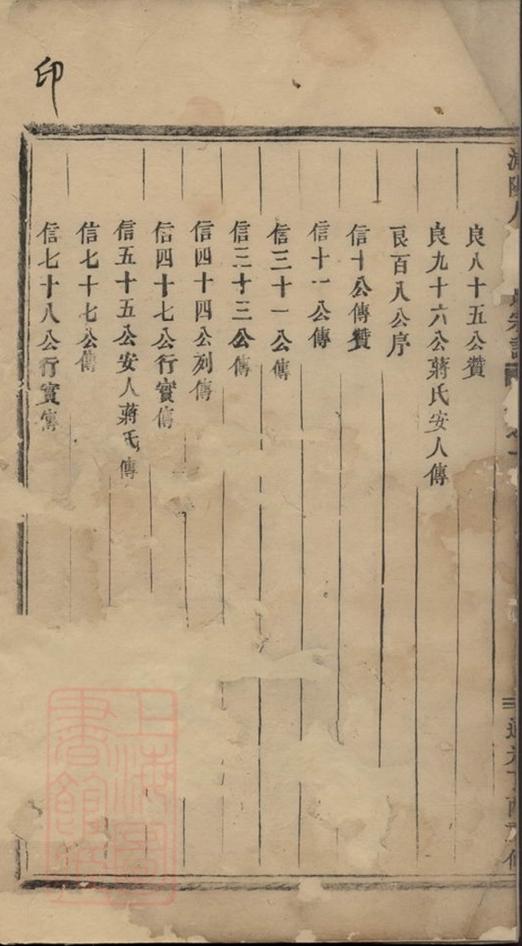 印
良八十五公贊
良九十六公蔣氏安人傳
良百八公序
信十公傳贊
信十一公傳
信三十一公傳
信三十三公傳
信四十四公列傳
信四十七公行實傳
信五十五公安人蔣氏傳
信七十七公傳
信七十八公行實傳
上海圖書館藏